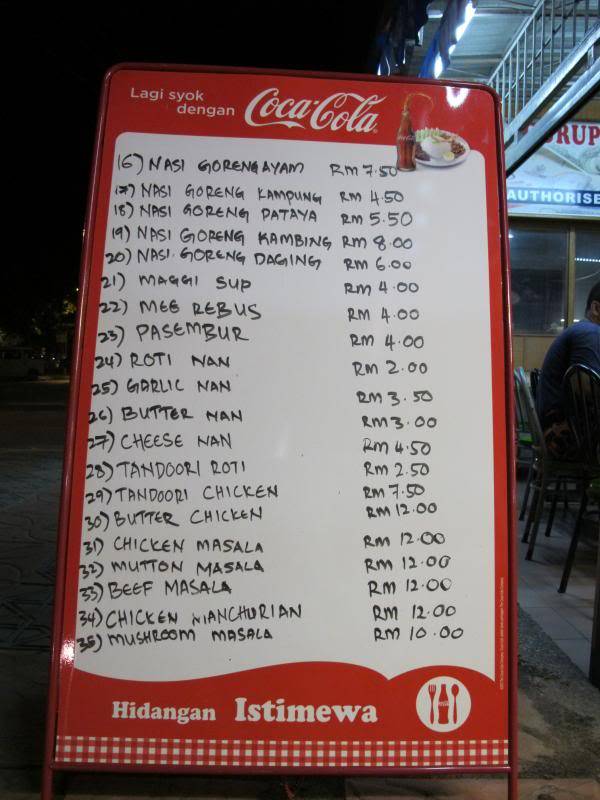 Lagi syok
dengan
Coca-Cola
16) NASI GORENG AYAM RM 7.50
17) NASI GORENG KAMPUNG RM 4.50
18) NASI GORENG PATAYA RM 5.50
19) NASI GORENG KAMBING RM 8.00
20) NASI GORENG DAGING RM 6.00
21) MAGGI SUP RM 4.00
22) MEE REBUS RM 4.00
23) PASEMBUR RM 4.00
24) ROTI NAN RM 2.00
25) GARLIC NAN RM 3.50
26) BUTTER NAN RM 3.00
27) CHEESE NAN RM 4.50
28) TANDOORI ROTI RM 2.50
29) TANDOORI CHICKEN RM 7.50
30) BUTTER CHICKEN RM 12.00
31) CHICKEN MASALA RM 12.00
32) MUTTON MASALA RM 12.00
33) BEEF MASALA RM 12.00
34) CHICKEN MANCHURIAN RM 12.00
35) MUSHROOM MASALA RM 10.00
Hidangan Istimewa
RUP
AUTHORISE